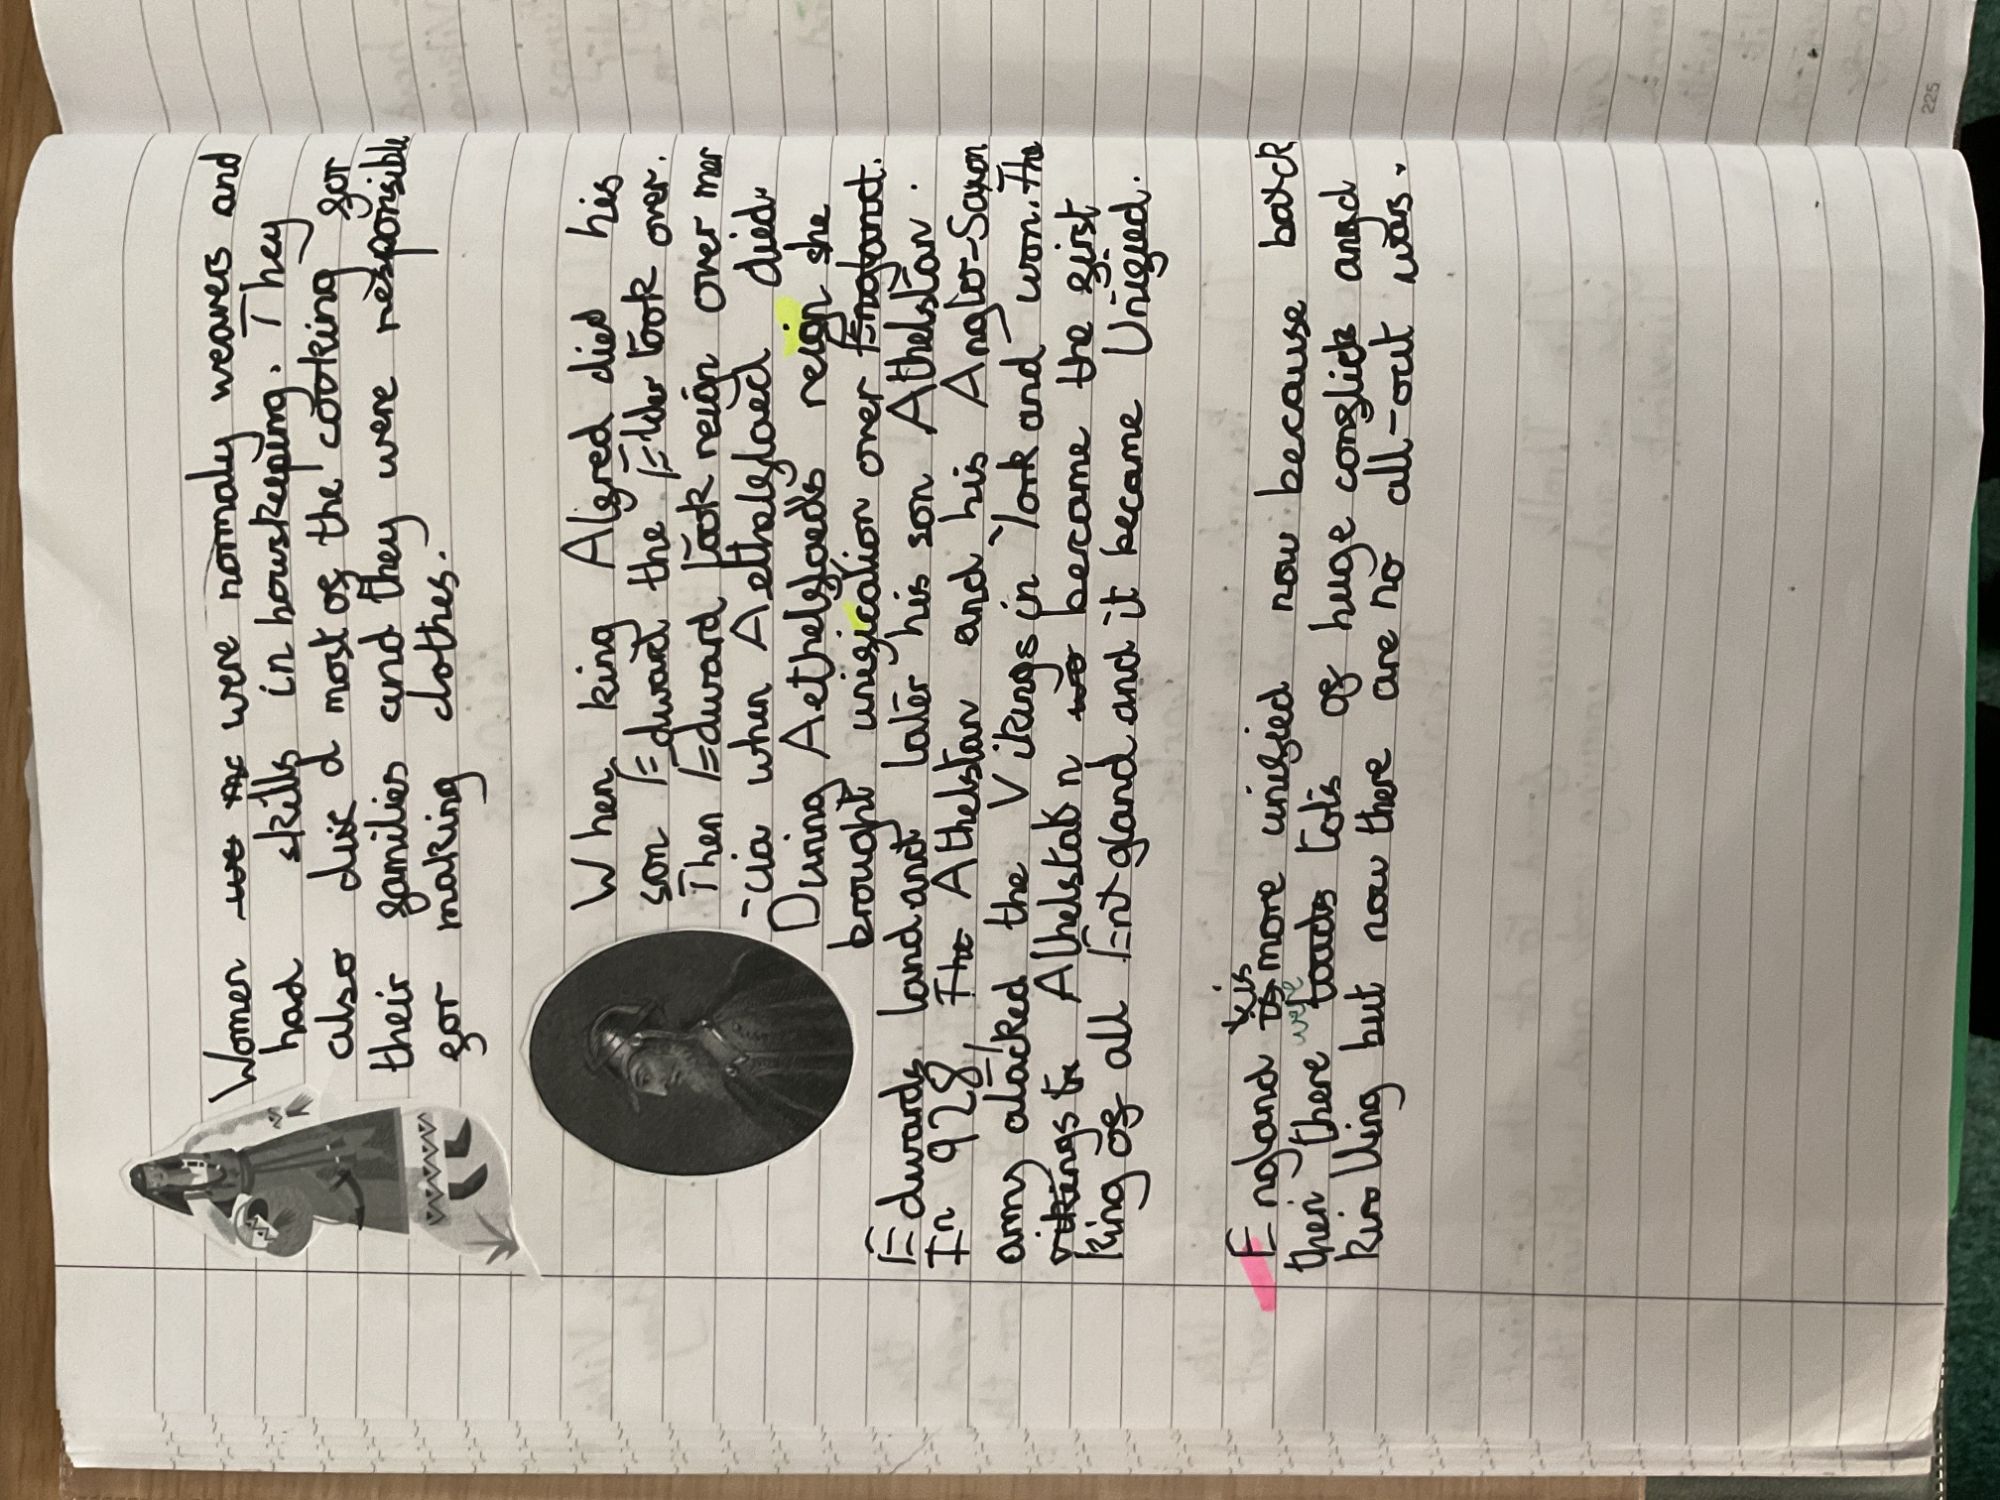 Women were normaly weavers and
had skills in houskeeping. They
also did most of the cooking for
their families and they were responsible
for making clothes.
When king Alfred died his
son Edward the Elder took over.
Then Edward took reign over mer
-cia when Aethelflaed died.
During Aethelflaeds reign she
brought unification over
Edwards land and later his son Athelstan.
In 928, Athelstan and his Anglo-Saxon
army atacked the Vikings in York and won. The
Athelstan became the first
king of all England and it became Unified.
England is more unified now because back
then there were lots of huge conflicts and
but now there are no all-out wars.
225